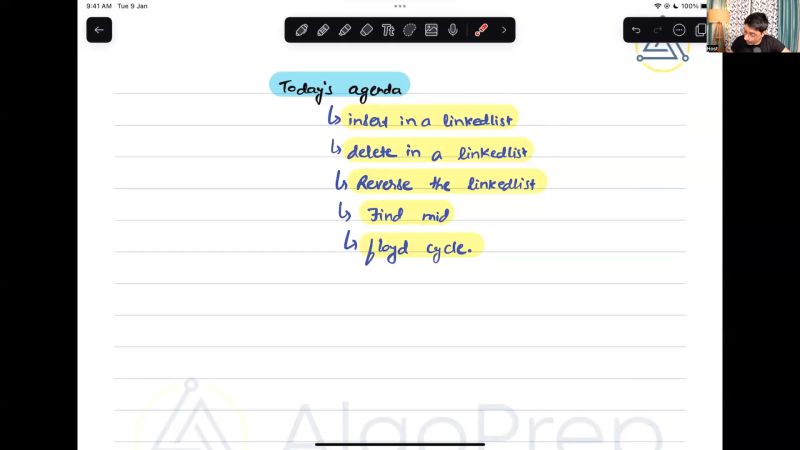 9:41 AM Tue 9 Jan
100%
Tt
Host
Today's agenda
↳ insert in a linkedlist
↳ delete in a linkedlist
↳ Reverse the linkedlist
↳ Find mid
↳ floyd cycle.
AlgoPrep